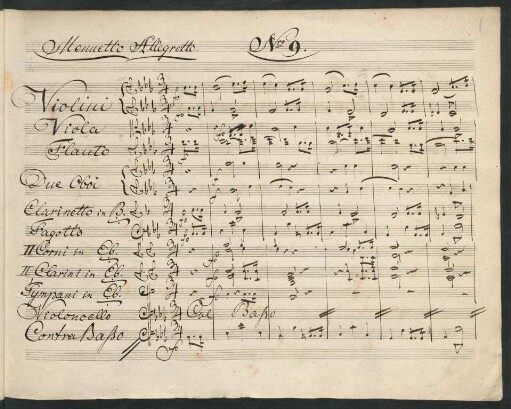 Menuetto Allegretto. Nro 9.
Violini
Viola
Flauto
Due Oboi
Clarinetto in B.
Fagotto
II Corni in Eb.
II Clarini in Eb.
Tympani in Eb.
Violoncello Col Basso
Contra Basso